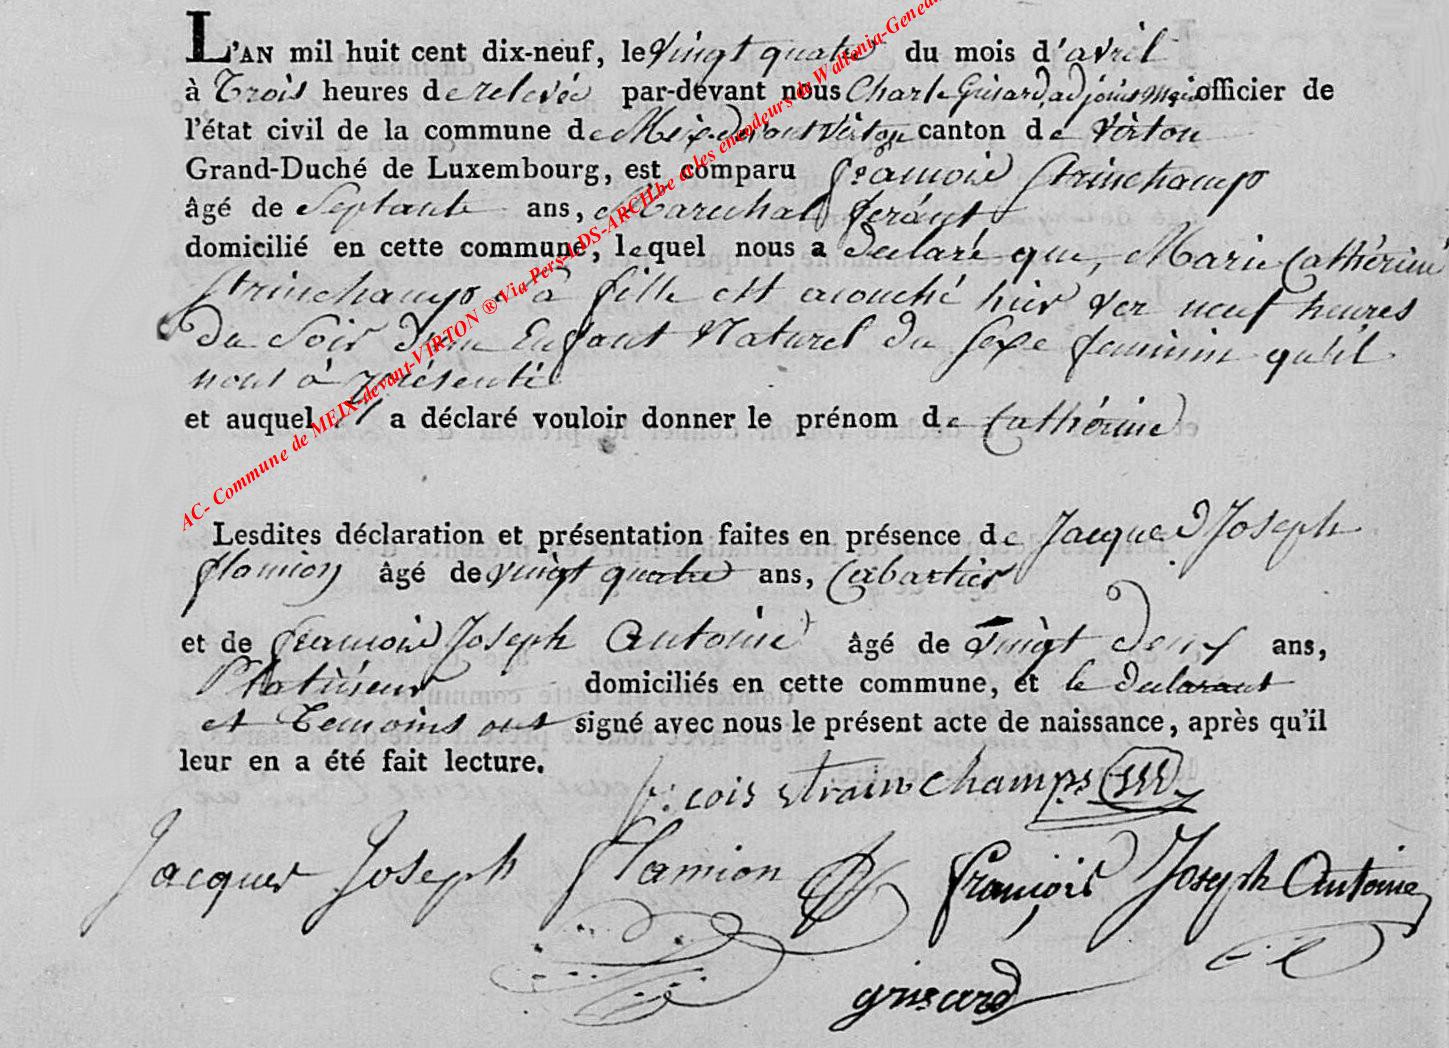 L'AN mil huit cent dix-neuf, le vingt quatre du mois d'avril
à Trois heures de relevée par-devant nous Charle Grisard, adjoint officier de
l'état civil de la commune de Meix devant Virton canton de Virton
Grand-Duché de Luxembourg, est comparu françois Strinchamp
âgé de Septante ans, Marechal ferant
domicilié en cette commune, lequel nous a declaré que, Marie Cathérine
Strinchamp sa fille est acouché hier ver neuf heures
du Soir d'un Enfant Naturel du Sexe feminin qu'il
nous à présenté
et auquel il a déclaré vouloir donner le prénom de Cathérine
Lesdites déclaration et présentation faites en présence de Jacque Joseph
flamion âgé de vingt quatre ans, Cabartier
et de francois Joseph Antoine âgé de vingt deux ans,
domiciliés en cette commune, et le declarant
et Temoins ont signé avec nous le présent acte de naissance, après qu'il
leur en a été fait lecture.
f: cois strainchamps
Jacques Joseph flamion françois Joseph Antoine
grisard
AC- Commune de MEIX-devant-VIRTON ® Via Pers-LDS-ARCH.be et les encodeurs de Wallonia-Genea